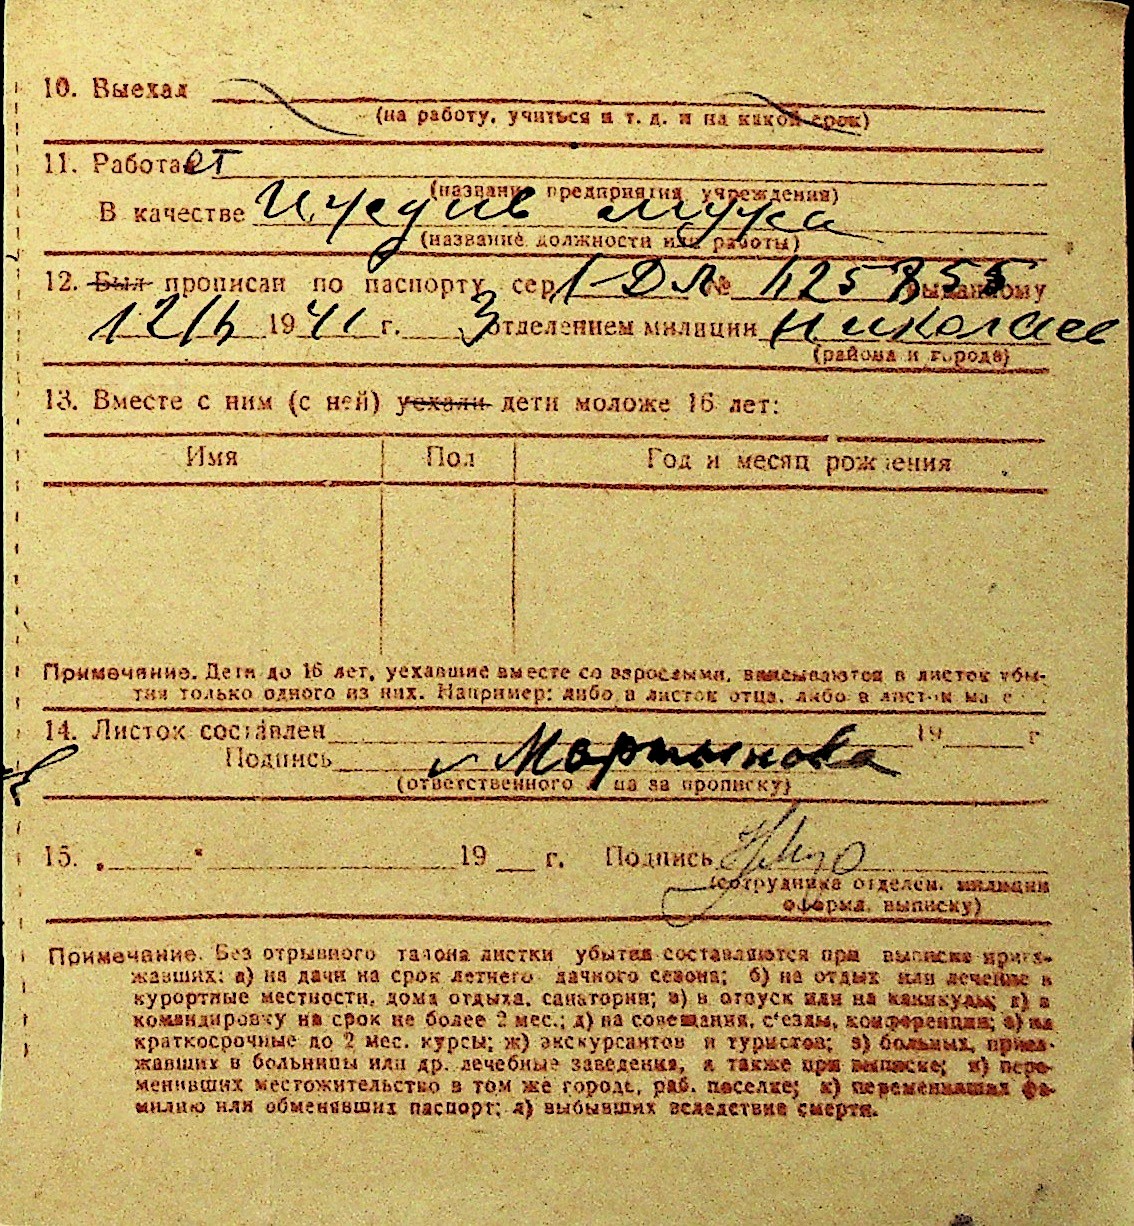 10. Выехал
(на работу, учиться и т. д. и на какой срок)
11. Работает
(название предприятия учреждения)
В качестве Иждив мужа
(название должности или работы)
12. Был прописан по паспорту сер I-ДЛ № 625855 выданному
12/6 1941 г. 3 отделением милиции Николаев
(района и города)
13. Вместе с ним (с ней) уехали дети моложе 16 лет:
Имя Пол Год и месяц рождения
Примечание. Дети до 16 лет, уехавшие вместе со взрослыми, вписываются в листок убы-
тия только одного из них. Например: либо в листок отца, либо в листок ма
14. Листок составлен 19 г
Подпись Мартынова
(ответственного лица за прописку)
15. „ “ 19 г. Подпись
(сотрудника отделен. милиции
оформл. выписку)
Примечание. Без отрывного талона листки убытия составляются при выписке приез-
жавших: а) на дачи на срок летнего дачного сезона; б) на отдых или лечение в
курортные местности, дома отдыха, санатории; в) в отпуск или на каникулы; г) в
командировку на срок не более 2 мес.; д) на совещания, с'езды, конференции; е) на
краткосрочные до 2 мес. курсы; ж) экскурсантов и туристов; з) больных, приез-
жавших в больницы или др. лечебные заведения, а также при выписке; и) пере-
менивших местожительство в том же городе, раб. поселке; к) переменивших фа-
милию или обменявших паспорт; л) выбывших вследствие смерти.